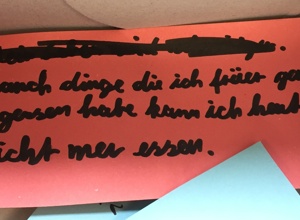 auch dinge die ich früer ge
gessen habe kann ich heut
icht mer essen.